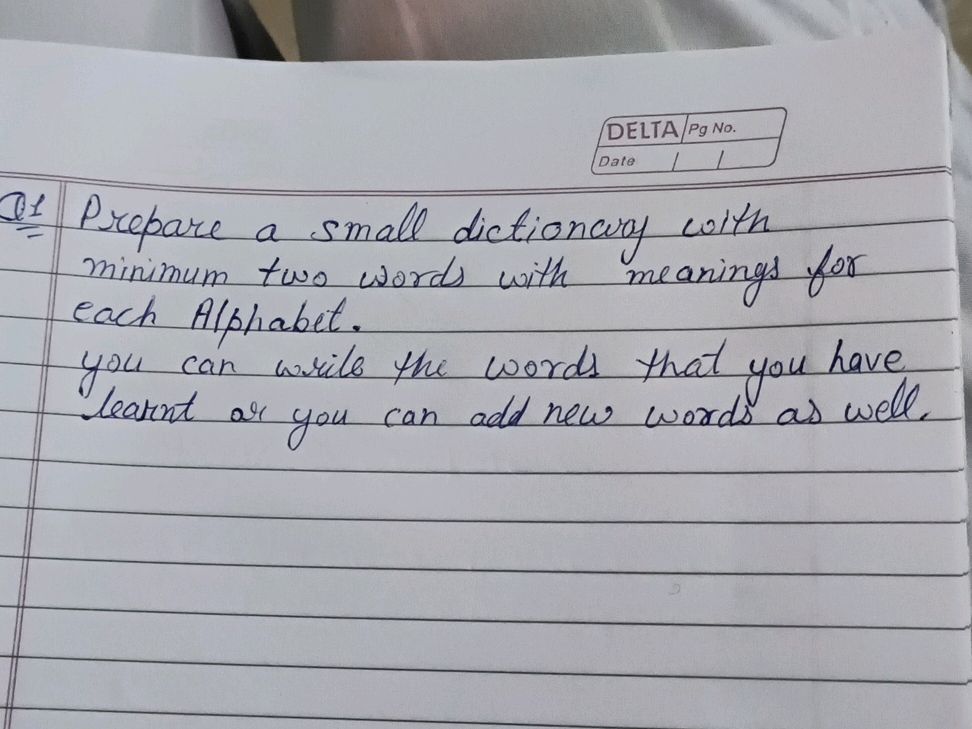 DELTA Pg No.
Date / /
Q1 Prepare a small dictionary with
minimum two words with meanings for
each Alphabet.
you can write the words that you have
learnt or you can add new words as well.